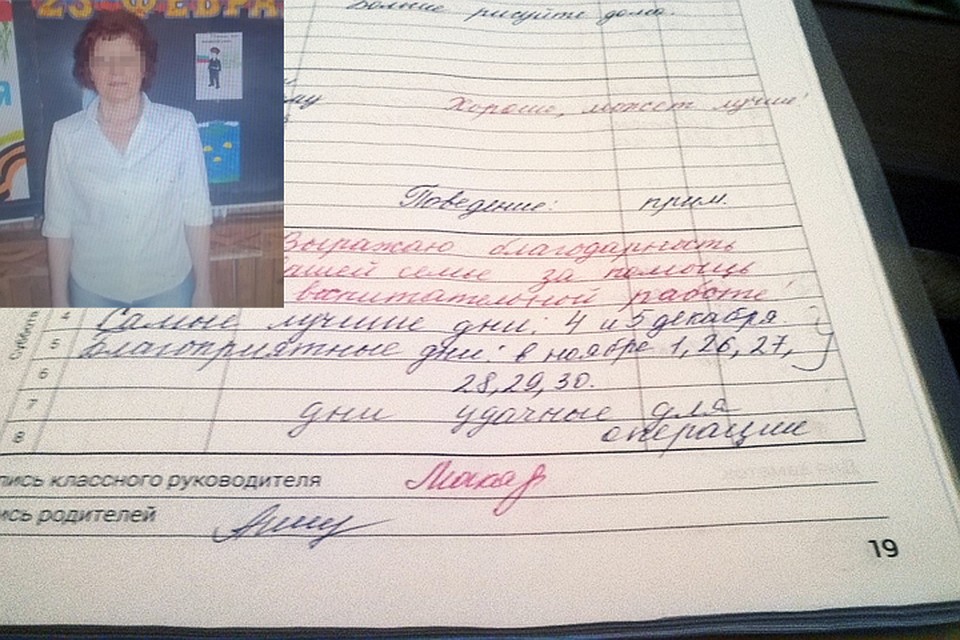 23 ФЕВРА
Я
Больше рисуйте дома.
му
Хорошо, может лучше!
Поведение: прим.
Выражаю благодарность
вашей семье за помощь
воспитательной работе!
суббота
4 Самые лучшие дни: 4 и 5 декабря.
5 Благоприятные дни: в ноябре 1, 26, 27,
6 28, 29, 30.
7 дни удачные для
8 операции
пись классного руководителя Макар
ись родителей
19